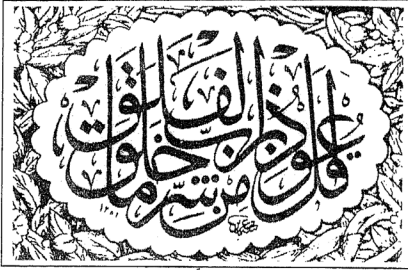 قُلْ اَعُوذُ بِرَبِّ الْفَلَقِ
مِنْ شَرِّ مَا خَلَقَ